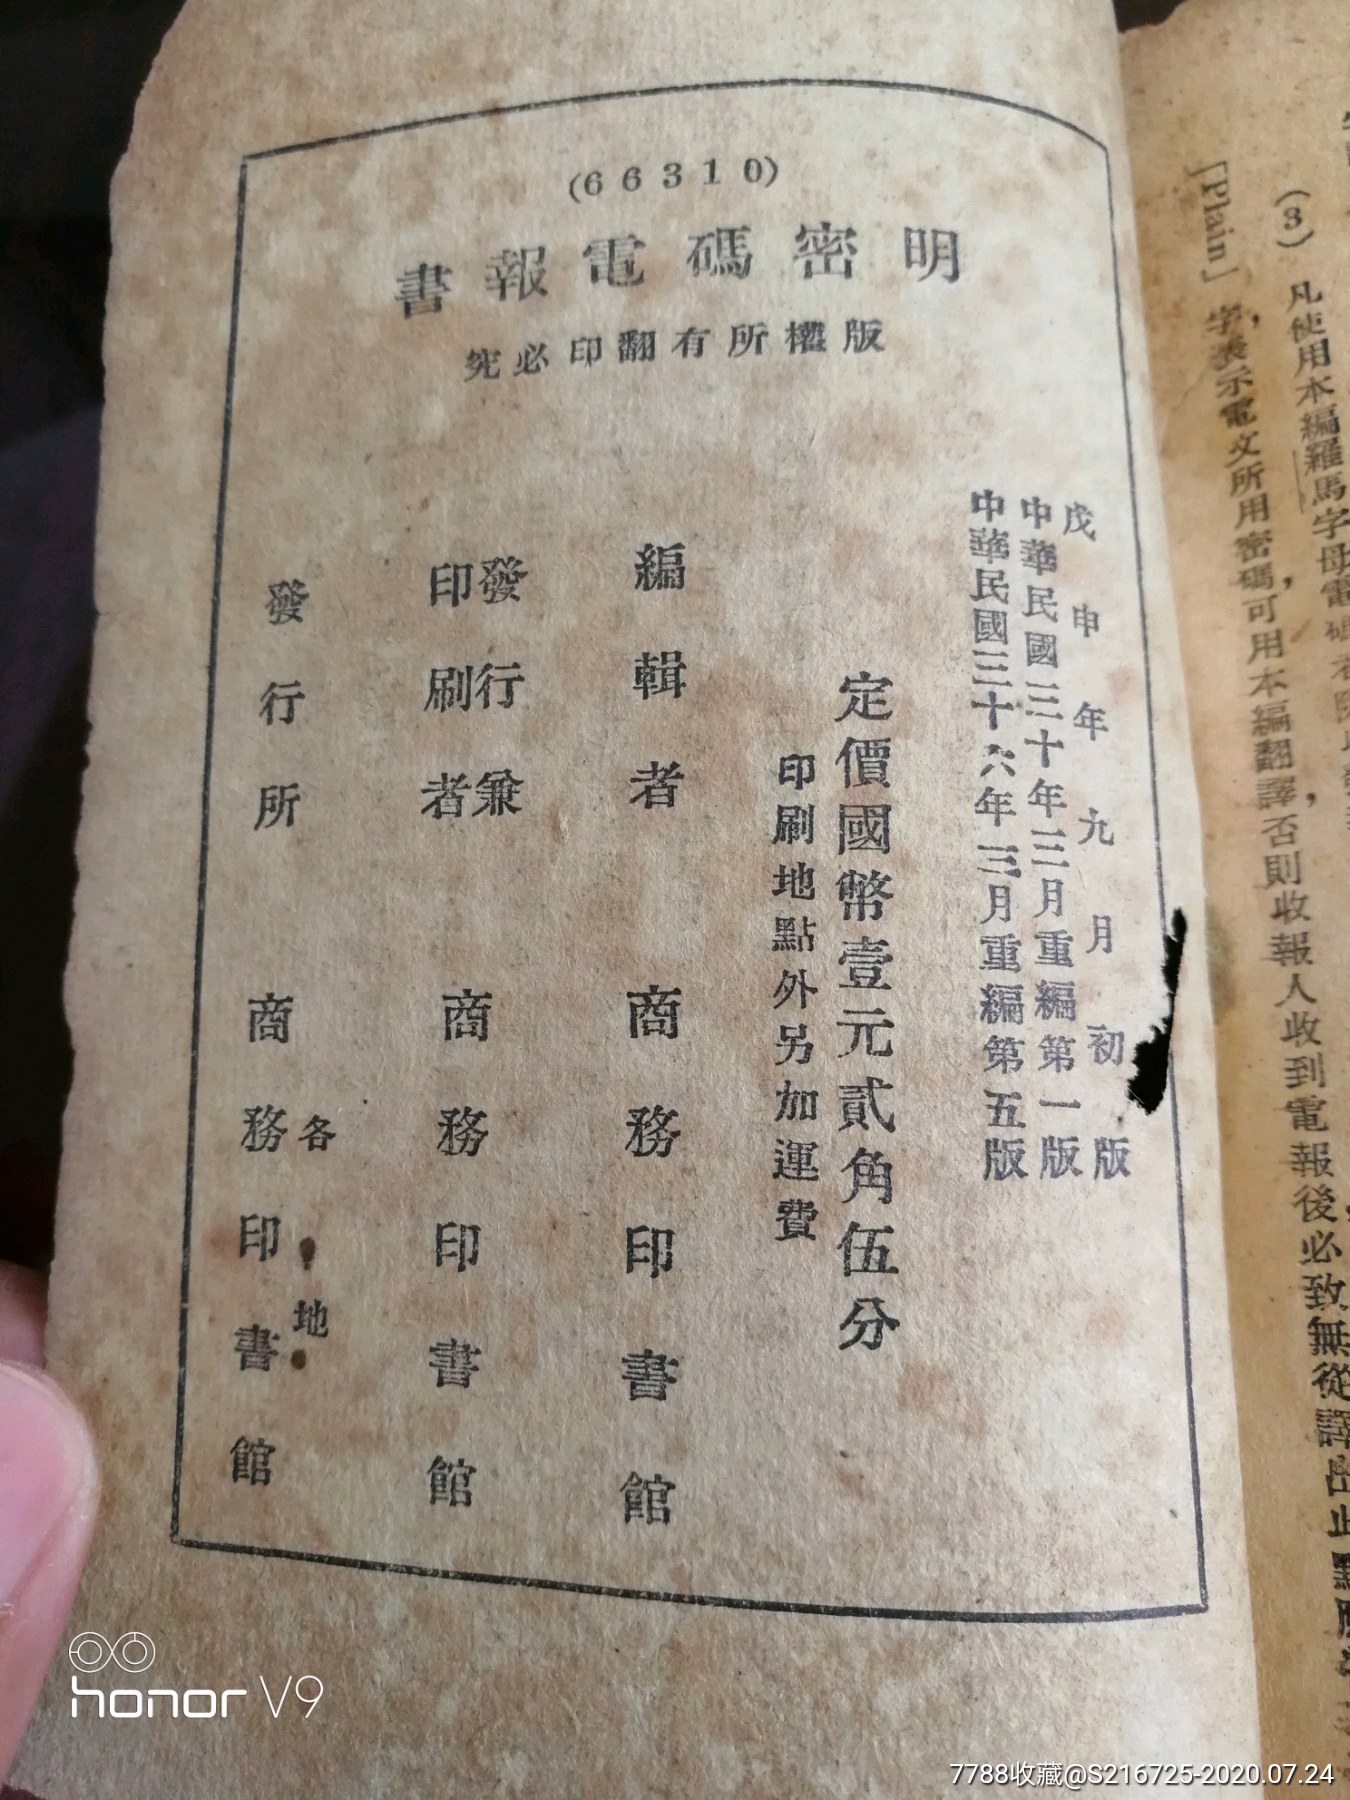 (3) 凡使用本編羅馬字母電碼
[Plain] 字,表示電文所用密碼,可用本編翻譯,否則收報人收到電報後必致無從譯出此點應
(66310)
明密碼電報書
版權所有翻印必究
戊申年九月初版
中華民國三十年三月重編第一版
中華民國三十六年三月重編第五版
定價國幣壹元貳角伍分
印刷地點外另加運費
編輯者 商務印書館
發行兼
印刷者 商務印書館
各地
發行所 商務印書館
honor V9
7788收藏@S216725-2020.07.24